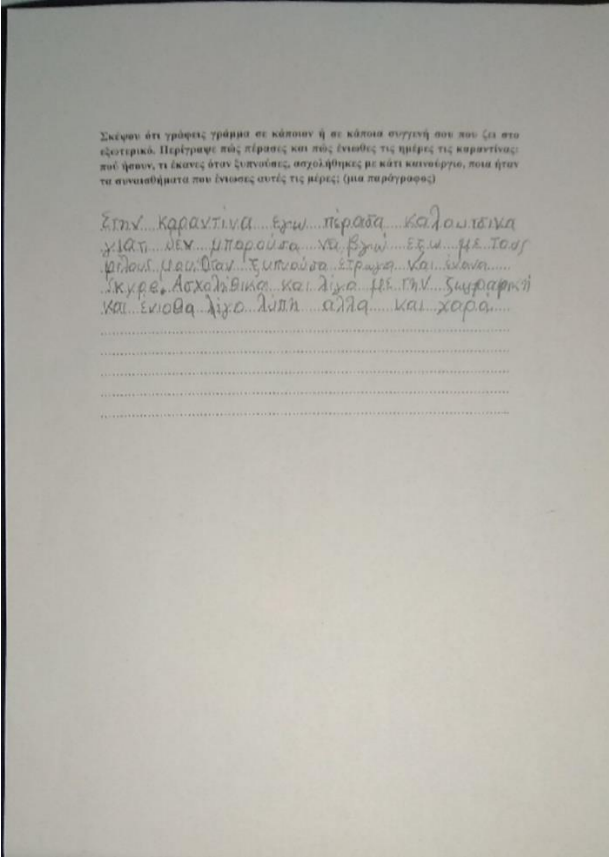 Σκέψου ότι γράφεις γράμμα σε κάποιον ή σε κάποια συγγενή σου που ζει στο
εξωτερικό. Περίγραψε πώς πέρασες και πώς ένιωθες τις ημέρες τις καραντίνας:
πού ήσουν, τι έκανες όταν ξυπνούσες, ασχολήθηκες με κάτι καινούργιο, ποια ήταν
τα συναισθήματα που ένιωσες αυτές τις μέρες; (μια παράγραφος)
Στην καραντίνα εγώ πέρασα καλουτσικα
γιατι δεν μπορούσα να βγώ έξω με τους
φίλους μου. Όταν ξυπνούσα έτρωγα και έκανα
Σκυρε. Ασχολήθικα και λίγο με την ζωγραφική
και ένιοθα λίγο λύπη αλλα και χαρά